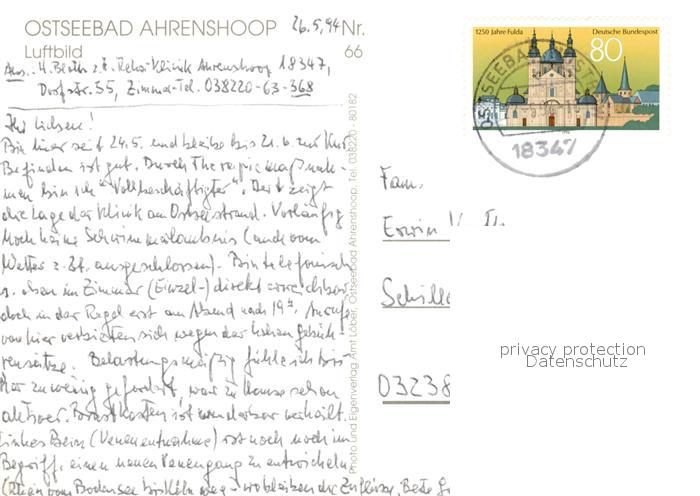 OSTSEEBAD AHRENSHOOP 26.5.94 Nr.
Luftbild 66
Abs.: H. z. Z. Reha-Klinik Ahrenshoop 18347,
Dorfstr. 55, Zimmer-Tel. 038220-63-368
Ihr Lieben!
Bin hier seit 24.5. und bleibe bis 21.6. zur Kur.
Befinden ist gut. Durch Therapiemaßnah-
men bin ich "Vollbeschäftigter". Bild zeigt
die Lage der Klinik am Ostseestrand. Vorläufig
noch keine Schwimmerlaubnis (auch vom
Wetter z. Zt. ausgeschlossen). Bin telefonisch
s. oben im Zimmer (Einzel-) direkt erreichbar
doch in der Regel erst am Abend nach 19°°. Anrufe
von hier verbieten sich wegen der hohen Gebüh-
rensätze. Belastungsmäßig fühle ich bis-
her zu wenig gefordert, war zu Hause schon
aktiver. Brustkasten ist wunderbar verheilt.
Linkes Bein (Venenentnahme) ist noch noch im
Begriff, einen neuen Venengang zu entwickeln
(Rhein vom Bodensee bis Köln weg - wo bleiben die Zuflüsse. Beste
Photo und Eigenverlag Amt Löber, Ostseebad Ahrenshoop, Tel. 038220 - 80182
1250 Jahre Fulda Deutsche Bundespost
80
OSTSEEBAD
18347
Fam.
Erwin
Schille
03238
privacy protection
Datenschutz